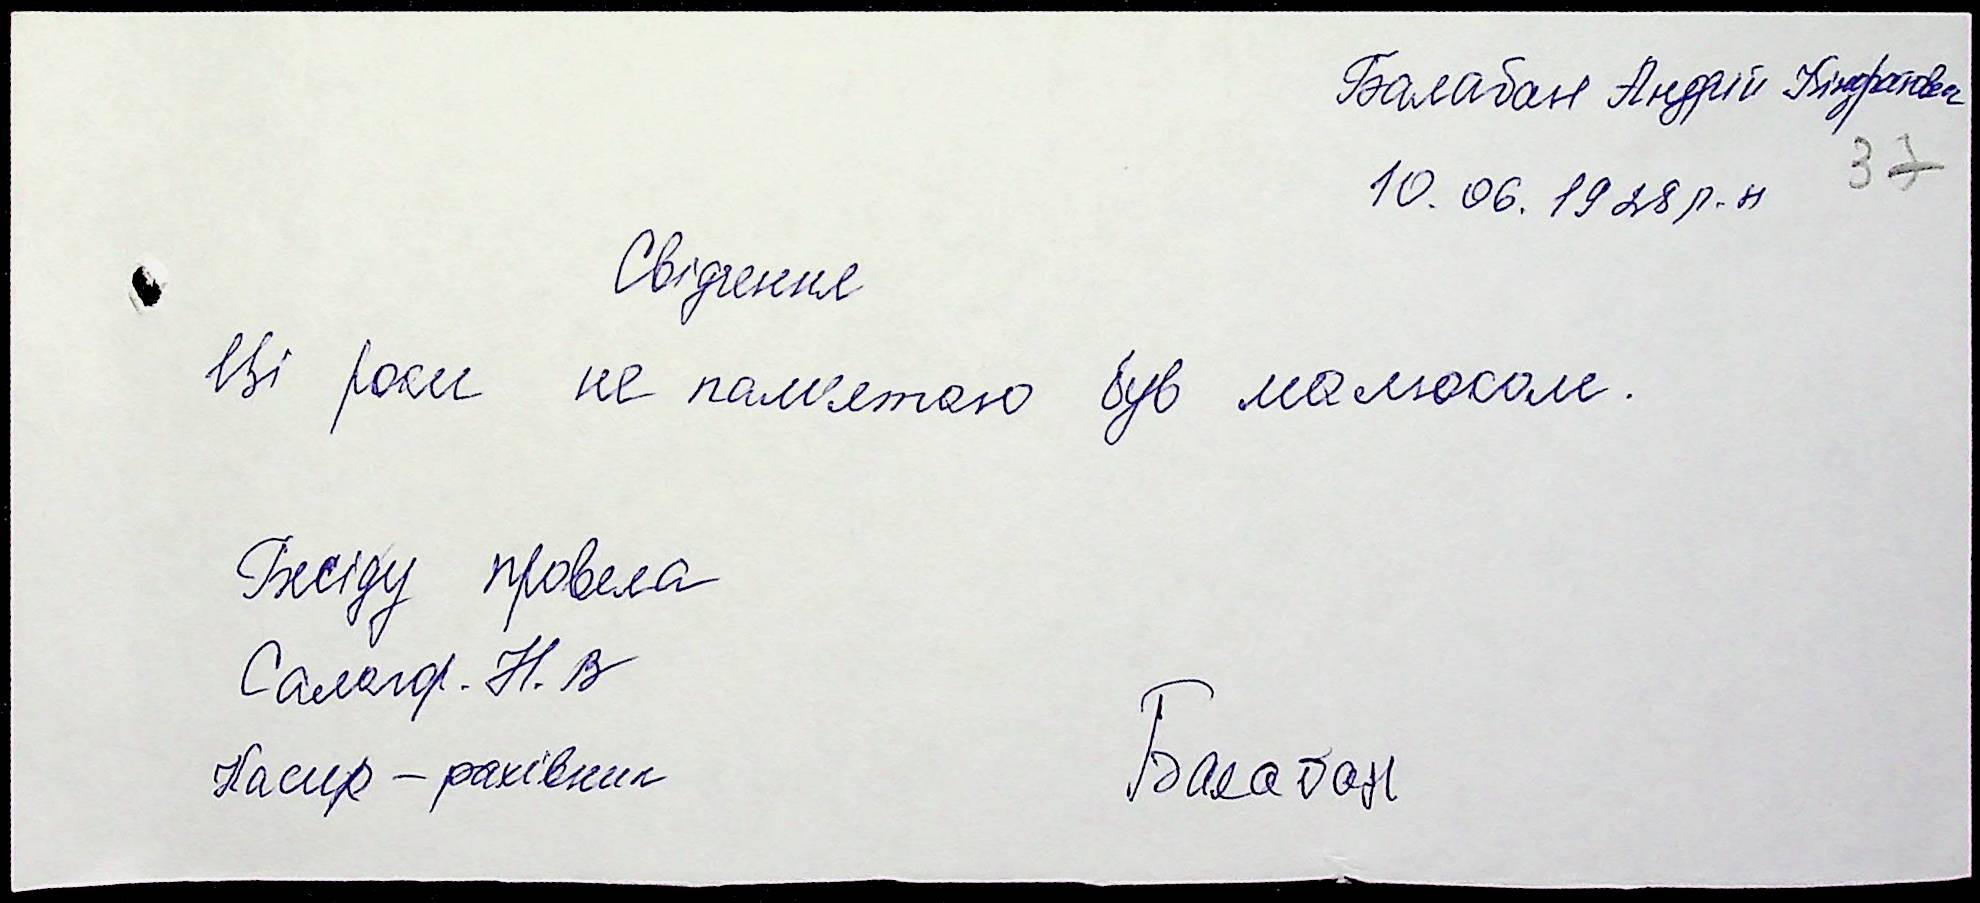 Балабан Андрій Кіндратович
37
10.06.1928 р.н
Свідчення
Ці роки не пам'ятаю був малюком.
Бесіду провела
Н.В
Касир – рахівник
Балабан